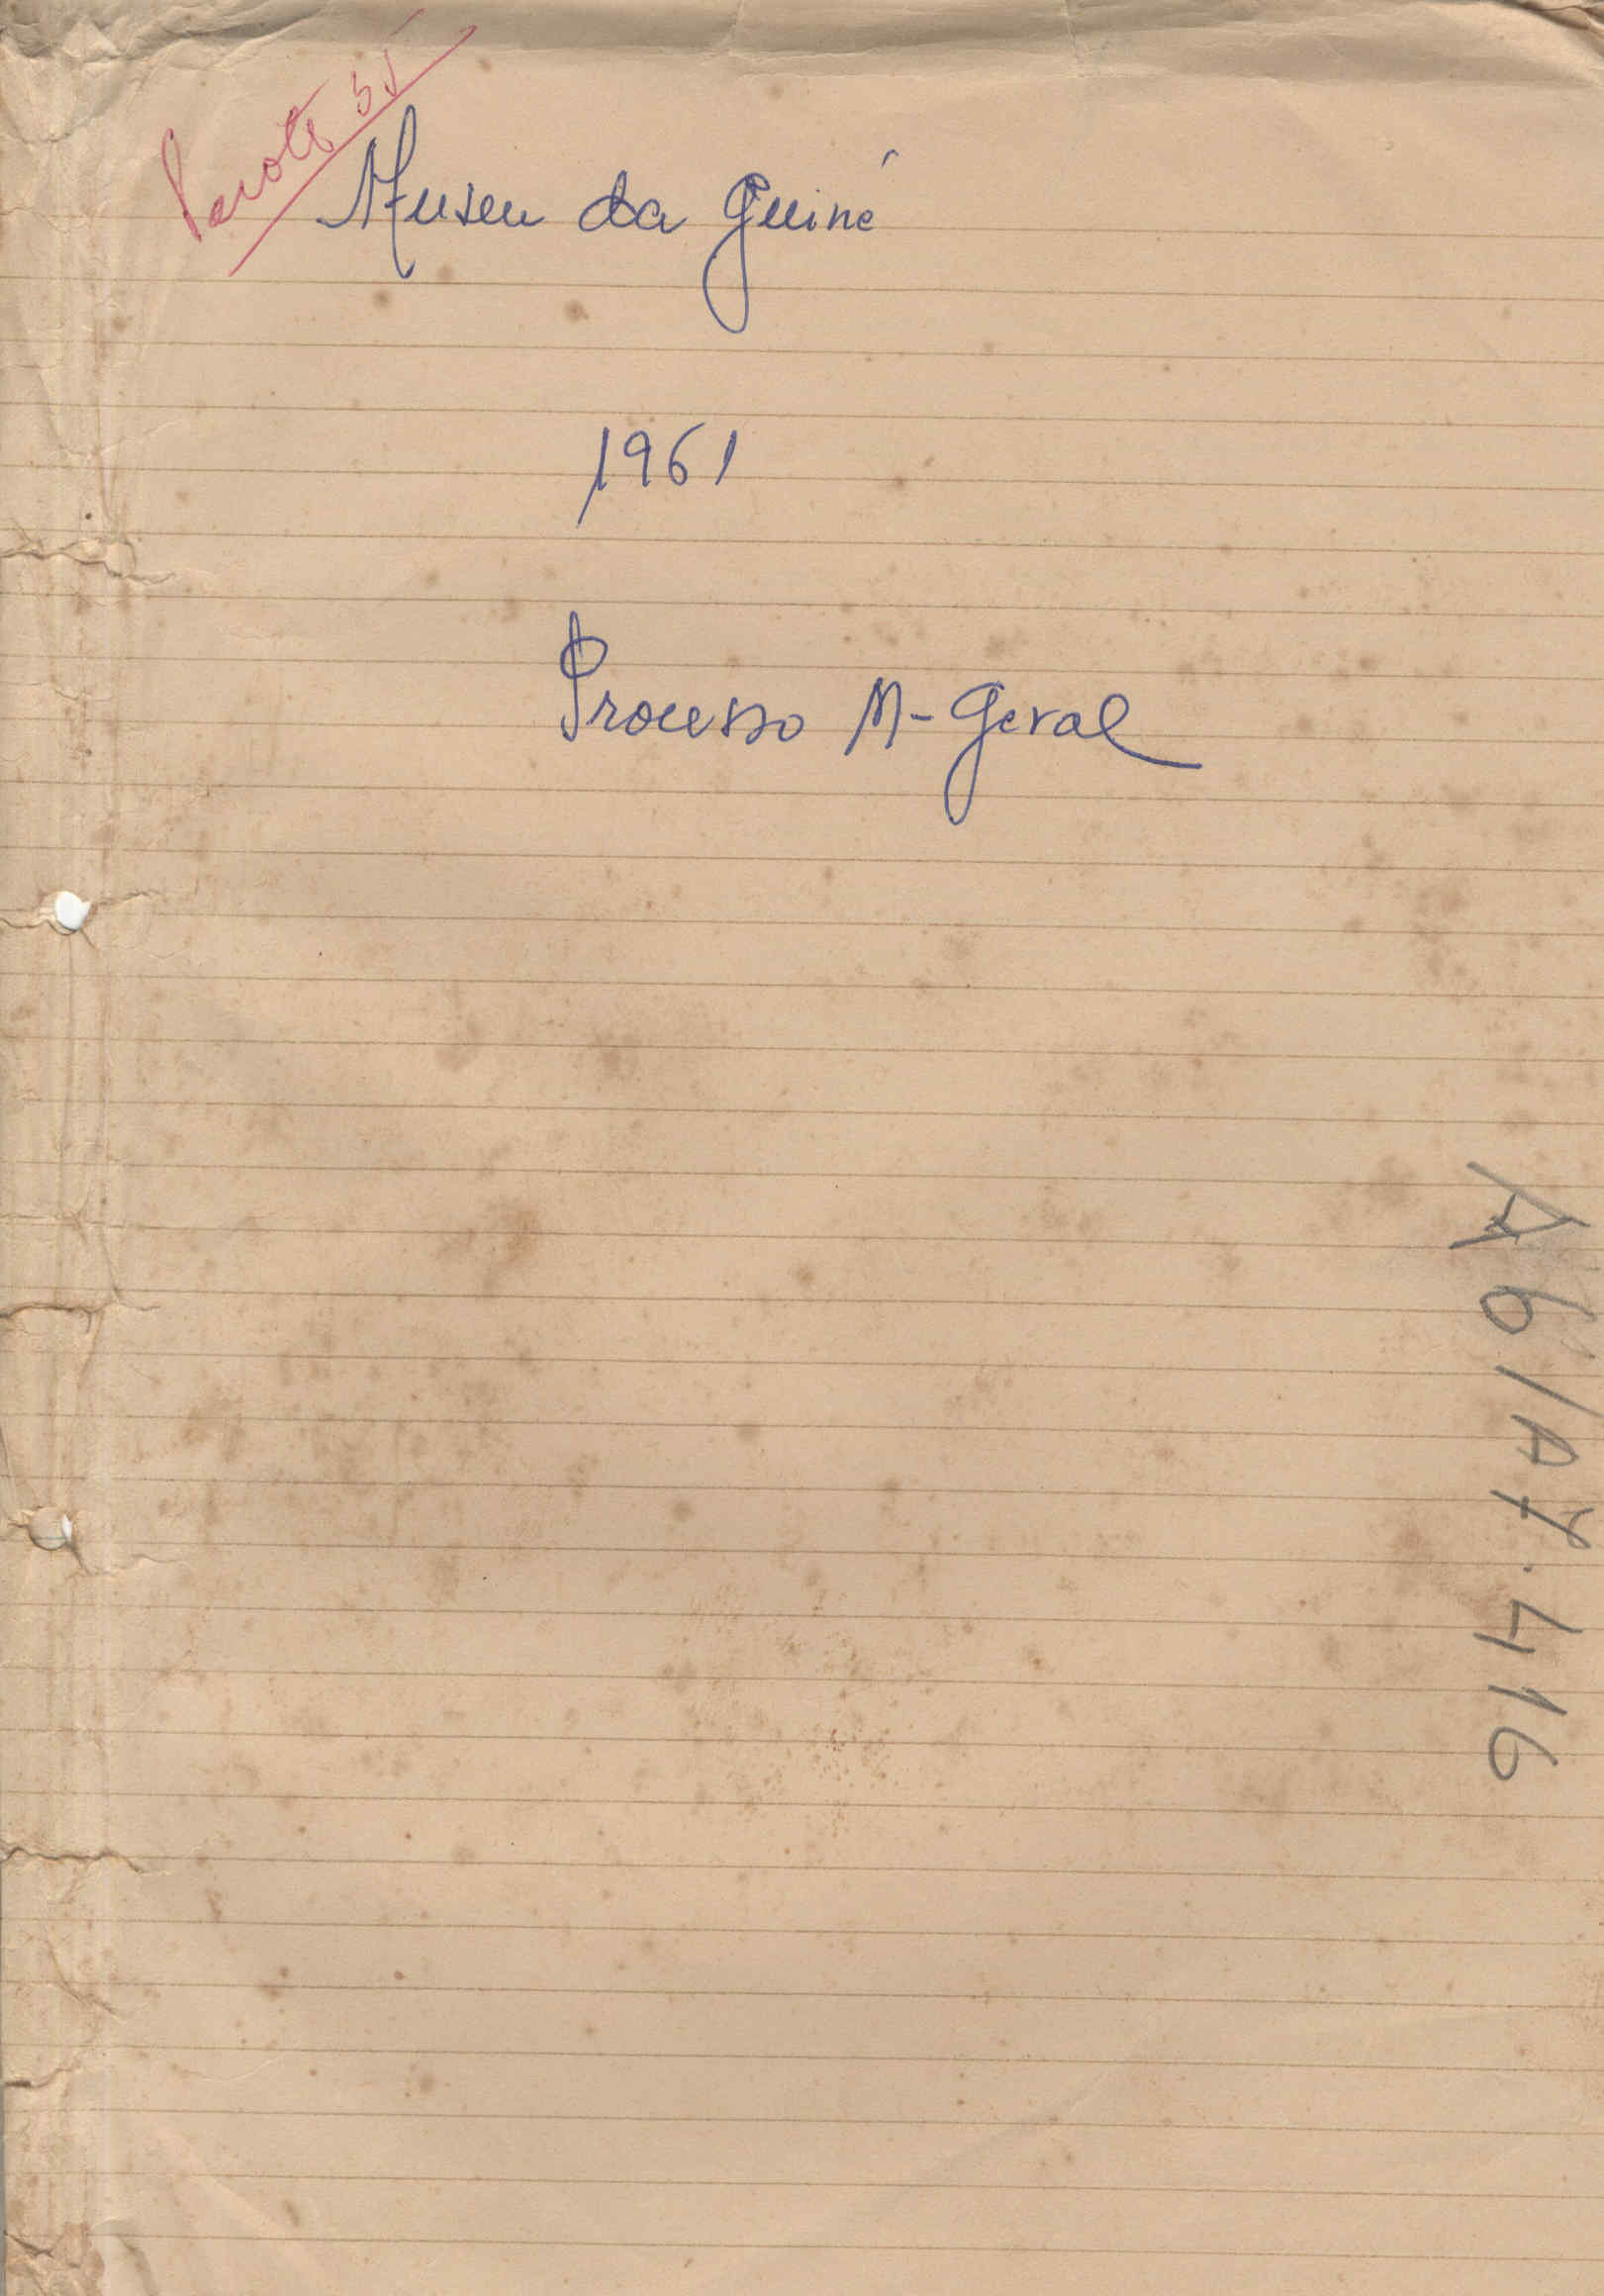 Pacote 35
Museu da Guiné
1961
Processo M-Geral
A6/A7.416